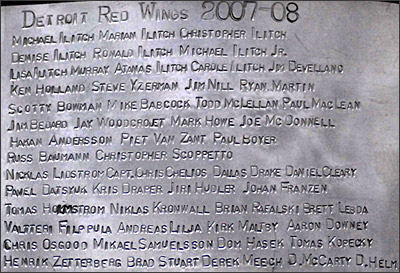 DETROIT RED WINGS 2007-08
MICHAEL ILITCH MARIAN ILITCH CHRISTOPHER ILITCH
DENISE ILITCH RONALD ILITCH MICHAEL ILITCH JR.
LISA ILITCH MURRAY ATANAS ILITCH CAROLE ILITCH JIM DEVELLANO
KEN HOLLAND STEVE YZERMAN JIM NILL RYAN MARTIN
SCOTTY BOWMAN MIKE BABCOCK TODD MCLELLAN PAUL MACLEAN
JIM BEDARD JAY WOODCROFT MARK HOWE JOE MCDONNELL
HAKAN ANDERSSON PIET VAN ZANT PAUL BOYER
RUSS BAUMANN CHRISTOPHER SCOPPETTO
NICKLAS LIDSTROM CAPT. CHRIS CHELIOS DALLAS DRAKE DANIEL CLEARY
PAVEL DATSYUK KRIS DRAPER JIRI HUDLER JOHAN FRANZEN
TOMAS HOLMSTROM NIKLAS KRONWALL BRIAN RAFALSKI BRETT LEBDA
VALTTERI FILPPULA ANDREAS LILJA KIRK MALTBY AARON DOWNEY
CHRIS OSGOOD MIKAEL SAMUELSSON DOM HASEK TOMAS KOPECKY
HENRIK ZETTERBERG BRAD STUART DEREK MEECH D. MCCARTY D. HELM